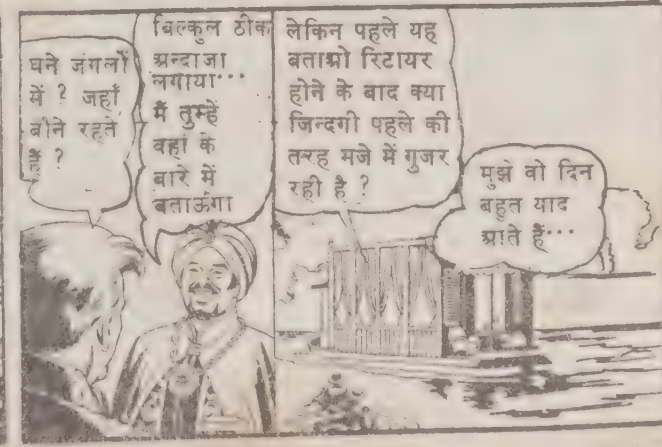 घने जंगलों
में ? जहाँ
बौने रहते
हैं ?
बिल्कुल ठीक
अन्दाजा
लगाया···
मैं तुम्हें
वहां के
बारे में
बताऊंगा
लेकिन पहले यह
बताओ रिटायर
होने के बाद क्या
जिन्दगी पहले की
तरह मजे में गुजर
रही है ?
मुझे वो दिन
बहुत याद
आते हैं···